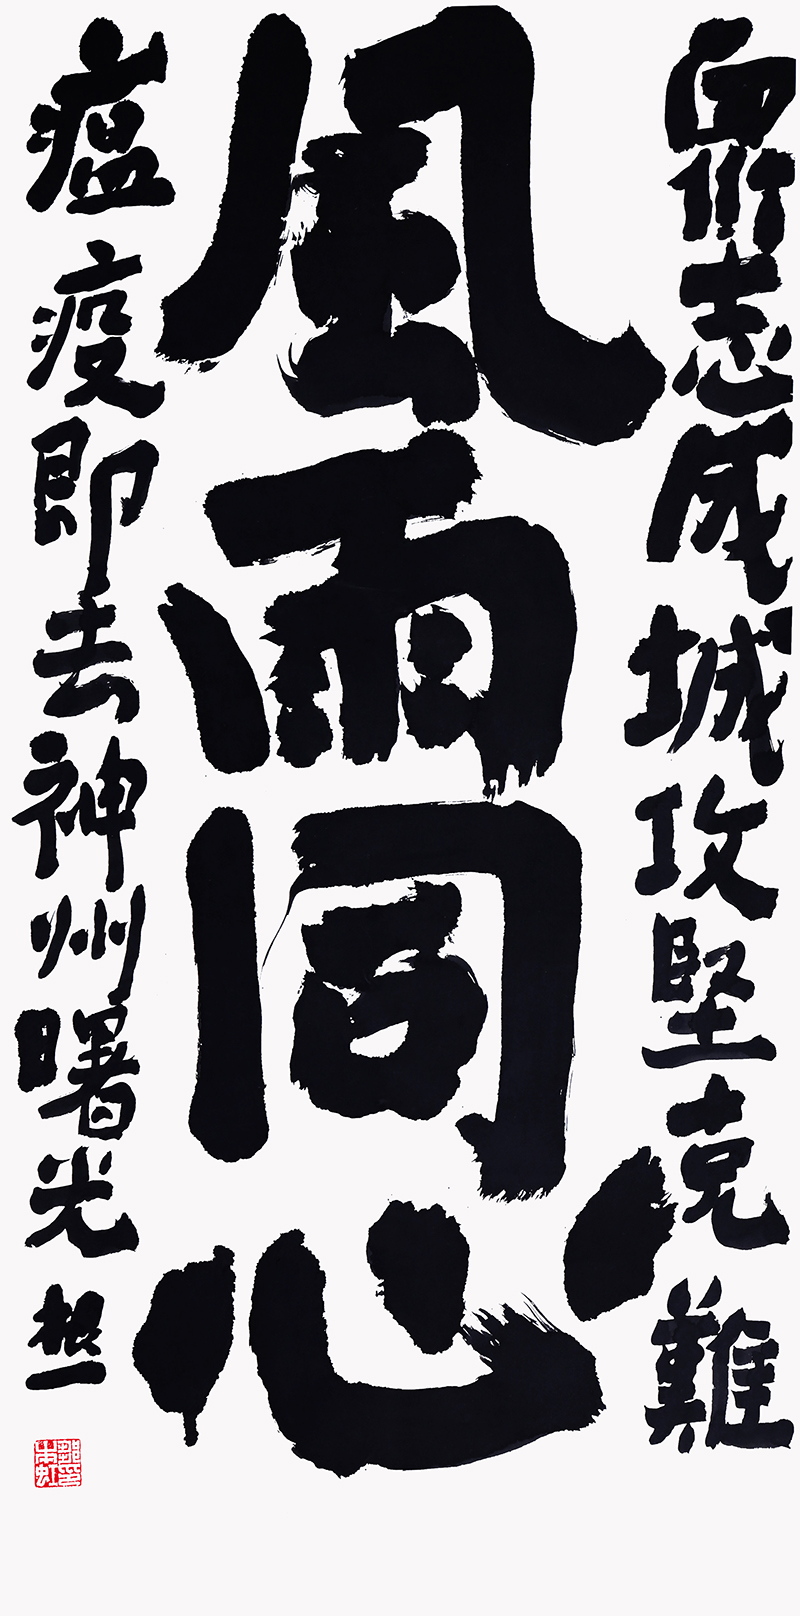 眾志成城攻堅克難
風雨同心
瘟疫即去神州曙光